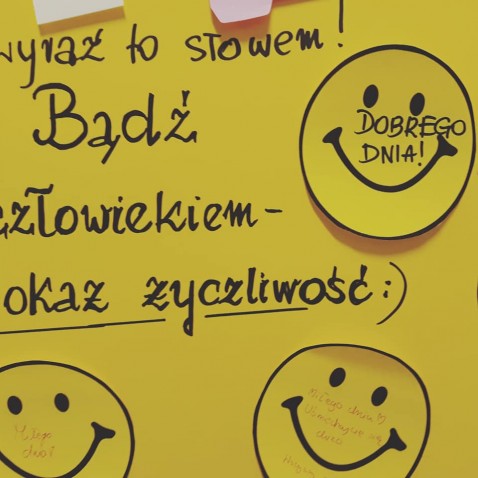 wyraź to słowem!
Bądź
człowiekiem-
okaż życzliwość:)
DOBREGO
DNIA!
Miłego
dnia!
Miłego dnia
Uśmiechnij się